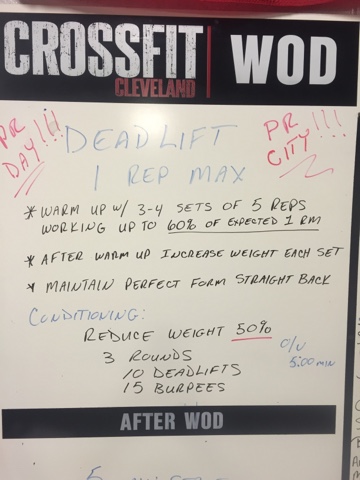 CROSSFIT WOD
CLEVELAND
PR DAY!!!
PR CITY!!!
DEADLIFT
1 REP MAX
* WARM UP W/ 3-4 SETS OF 5 REPS
WORKING UP TO 60% OF EXPECTED 1 RM
* AFTER WARM UP INCREASE WEIGHT EACH SET
* MAINTAIN PERFECT FORM STRAIGHT BACK
CONDITIONING:
REDUCE WEIGHT 50%
3 ROUNDS
O/U
5:00 MIN
10 DEADLIFTS
15 BURPEES
AFTER WOD